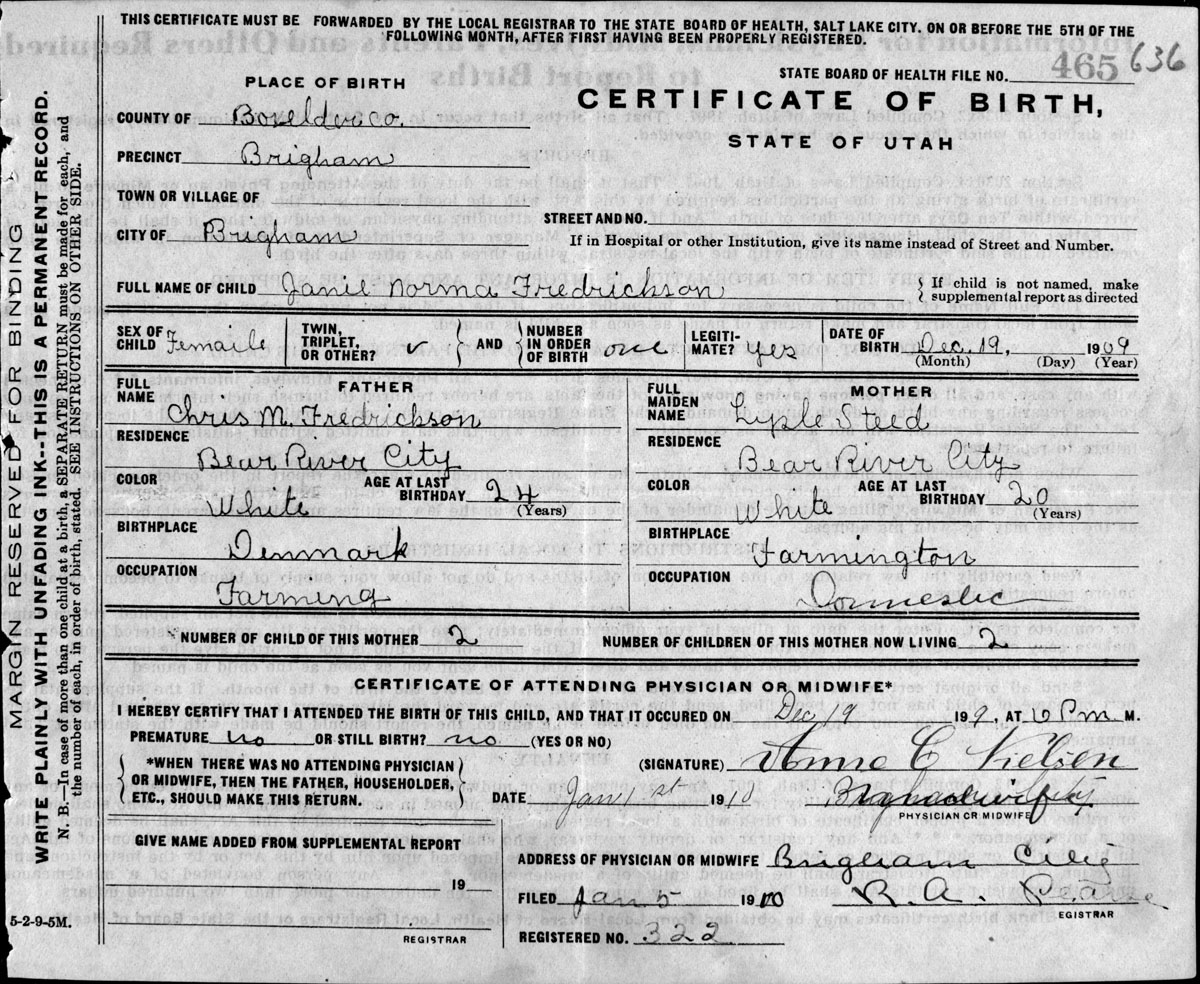 THIS CERTIFICATE MUST BE FORWARDED BY THE LOCAL REGISTRAR TO THE STATE BOARD OF HEALTH, SALT LAKE CITY. ON OR BEFORE THE 5TH OF THE
FOLLOWING MONTH, AFTER FIRST HAVING BEEN PROPERLY REGISTERED.
STATE BOARD OF HEALTH FILE NO. 465 636
PLACE OF BIRTH
CERTIFICATE OF BIRTH,
STATE OF UTAH
COUNTY OF Boxelder co.
PRECINCT Brigham
TOWN OR VILLAGE OF
STREET AND NO.
CITY OF Brigham
If in Hospital or other Institution, give its name instead of Street and Number.
FULL NAME OF CHILD Janie Norma Fredrickson
If child is not named, make
supplemental report as directed
SEX OF CHILD Femaile
TWIN, TRIPLET, OR OTHER?
AND
NUMBER IN ORDER OF BIRTH one
LEGITI-MATE? yes
DATE OF BIRTH Dec. 19, 1909
(Month) (Day) (Year)
FATHER
FULL NAME Chris M. Fredrickson
RESIDENCE
Bear River City
COLOR White
AGE AT LAST BIRTHDAY 24
(Years)
BIRTHPLACE
Denmark
OCCUPATION
Farming
MOTHER
FULL MAIDEN NAME Lysle Steed
RESIDENCE
Bear River City
COLOR White
AGE AT LAST BIRTHDAY 20
(Years)
BIRTHPLACE
Farmington
OCCUPATION
Domestic
*NUMBER OF CHILD OF THIS MOTHER 2 NUMBER OF CHILDREN OF THIS MOTHER NOW LIVING 2
CERTIFICATE OF ATTENDING PHYSICIAN OR MIDWIFE*
I HEREBY CERTIFY THAT I ATTENDED THE BIRTH OF THIS CHILD, AND THAT IT OCCURED ON Dec 19 190, AT 6 Pm M.
PREMATURE no OR STILL BIRTH? no (YES OR NO)
*WHEN THERE WAS NO ATTENDING PHYSICIAN
OR MIDWIFE, THEN THE FATHER, HOUSEHOLDER,
ETC., SHOULD MAKE THIS RETURN.
(SIGNATURE) Anna C Nielsen
DATE Jan 1st 1910
PHYSICIAN OR MIDWIFE
GIVE NAME ADDED FROM SUPPLEMENTAL REPORT
19
REGISTRAR
ADDRESS OF PHYSICIAN OR MIDWIFE Brigham City
FILED Jan 5 1910 R. A. Pearse
EGISTRAR
REGISTERED NO. 322
5-2-9-5M.
MARGIN RESERVED FOR BINDING
WRITE PLAINLY WITH UNFADING INK--THIS IS A PERMANENT RECORD.
N. B.—In case of more than one child at a birth, a SEPARATE RETURN must be made for each, and
the number of each, in order of birth, stated. SEE INSTRUCTIONS ON OTHER SIDE.